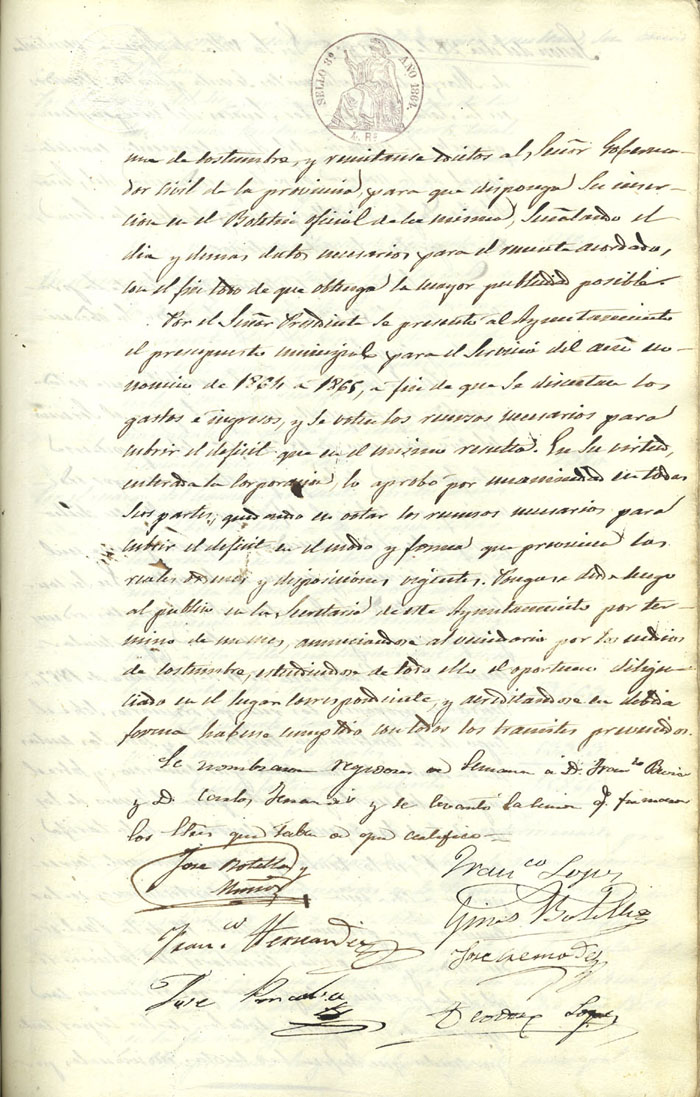 SELLO 8º AÑO 1864.
4. Rs
de costumbre, y remitanse al Señor Goberna-
dor Civil de la provincia, para que disponga su inser-
cion en el Boletin oficial de la misma, señalando el
dia y demas datos necesarios para el remate acordado,
con el fin todo de que obtenga la mayor publicidad posible.
Por el Señor Presidente se presentó al Ayuntamiento
el presupuesto municipal para el servicio del año eco-
nomico de 1864 a 1865, a fin de que se discutan los
gastos e ingresos, y se voten los recursos necesarios para
cubrir el deficit que en el mismo resulta. En su virtud,
enterada la Corporacion, lo aprobó por unanimidad en todas
sus partes, quedando en votar los recursos necesarios para
cubrir el deficit en el modo y forma que previenen las
reales ordenes y disposiciones vigentes. Pongase desde luego
al publico en la Secretaria de este Ayuntamiento por ter-
mino de un mes, anunciandose al vecindario por los medios
de costumbre, estendiendose de todo ello el oportuno diligen-
ciado en el lugar correspondiente, y acreditandose en debida
forma haberse cumplido con todos los tramites prevenidos.
Se nombraron regidores de Semana a D. Franco
y D. Carlos y se levantó la sesion q. firmaron
los Sres que saben de que certifico
Jose Botella y Franco Lopez
Muñoz
Gines Botella
Franco Hernandez
Jose
Jose
Lopez